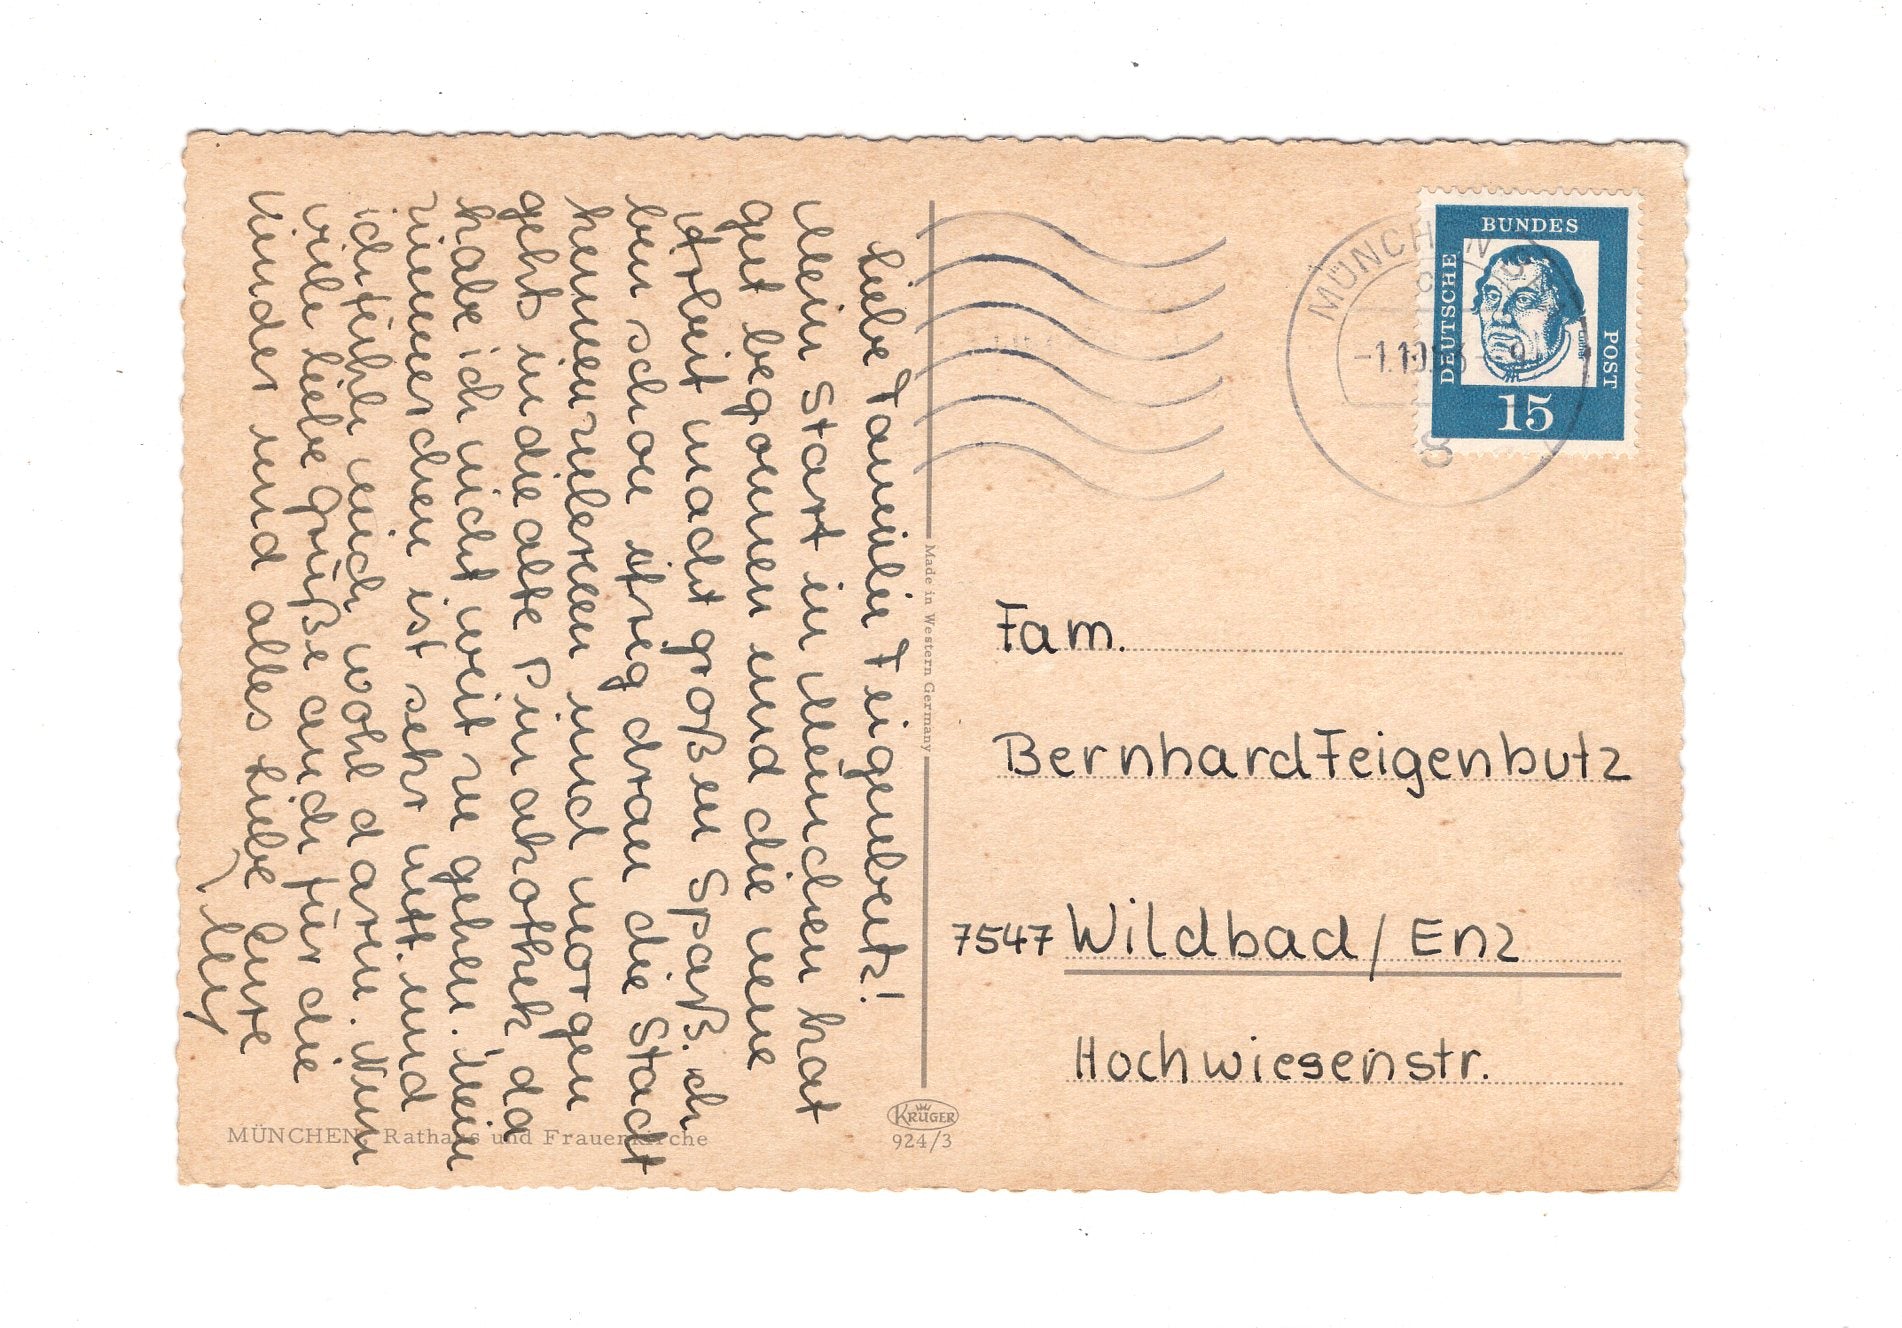 Liebe Familie Feigenbutz!
Mein Start in München hat
gut begonnen und die neue
Arbeit macht großen Spaß. ich
bin schon ifrig dran die Stadt
kennenzulernen und morgen
gehts in die alte Pinakothek da
habe ich nicht weit zu gehen. Mein
Zimmerchen ist sehr nett. und
ich fühle mich wohl darin. Nun
viele liebe grüße auch für die
Kinder und alles Liebe Eure
Made in Western Germany
MÜNCHEN, Rathaus und Frauenkirche
KRÜGER
924/3
MÜNCHEN
8
DEUTSCHE
BUNDES
POST
15
Fam.
Bernhard Feigenbutz
7547 Wildbad / Enz
Hochwiesenstr.